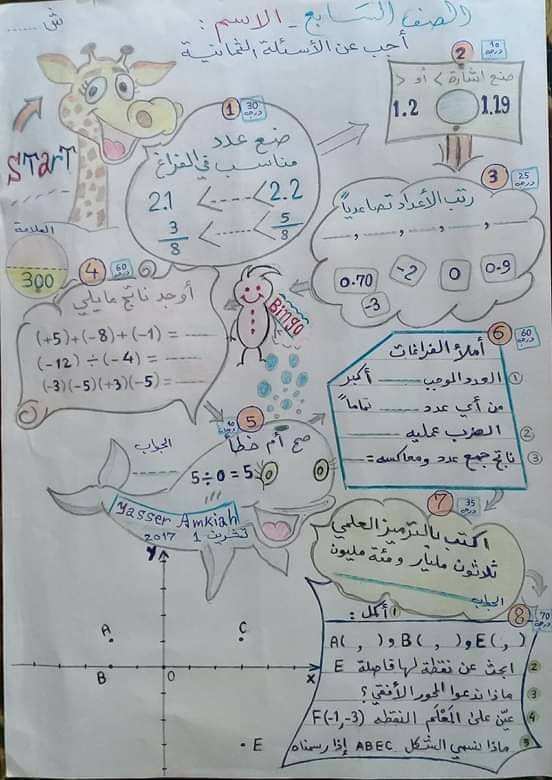 الصف السابع - الاسم:
ش ......
أجب عن الأسئلة الثمانية
START
1
30 درجة
ضع عدد
مناسب في الفراغ
2.1 <-----< 2.2
3/8 <-----< 5/8
2
10 درجة
ضع اشارة > أو <
1.2 1.19
3
25 درجة
رتب الأعداد تصاعدياً
----, ----, ----, ----, ----
0.70 -2 0 0.9
-3
العلامة
300
4
60 درجة
أوجد ناتج مايلي
(+5)+(-8)+(-1) = ----
(-12) ÷(-4) = ----
(-3)(-5)(+3)(-5)= ----
Bingo
5
10 درجة
صح أم خطأ
الجواب
5÷0 = 5
Yasser Amkiah
2017 تشرين 1
6
60 درجة
أملأ الفراغات
① العدد الموجب ------ أكبر
من أي عدد ------ تماماً
② الضرب عمليه ------
③ ناتج جمع عدد ومعاكسه = ----
7
35 درجة
اكتب بالترميز العلمي
ثلاثون مليار ومئة مليون
الجواب
8
70 درجة
1 أكمل:
A( , ) و B( , ) و E( , )
2 ابحث عن نقطة لها فاصلة E
3 ماذا ندعوا المحور الأفقي؟
4 عيّن على المَعْلم النقطه F(-1,-3)
5 ماذا نسمي الشكل ABEC إذا رسمناه
y
A
C
B
O
x
E